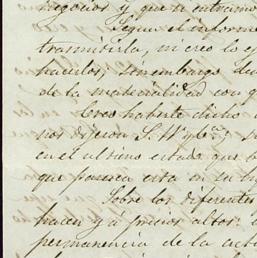 negocios y que si entramos
Segun el informe
trasmitirla, ni creo lo e
hacerlos, sin embargo de
de la materialidad con q
Creo haberte dicho
nos dijeron S. M. y
en el ultimo estado que
que parezca esta en la
Sobre los diferentes
hacen y a precios altos:
permanencia de la